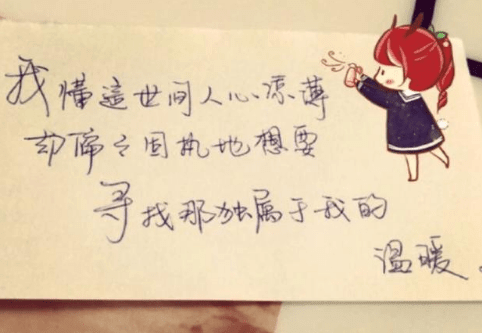 我懂這世间人心凉薄
却偏々固执地想要
寻找那独属于我的
温暖。